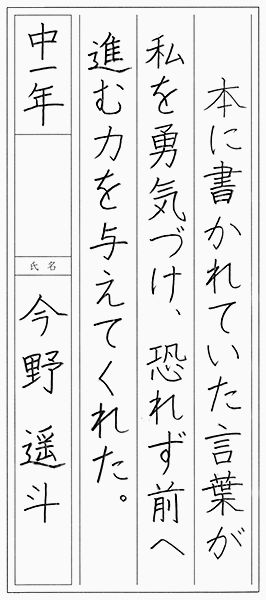 本に書かれていた言葉が
私を勇気づけ、恐れず前へ
進む力を与えてくれた。
中一年
氏名
今野 遥斗